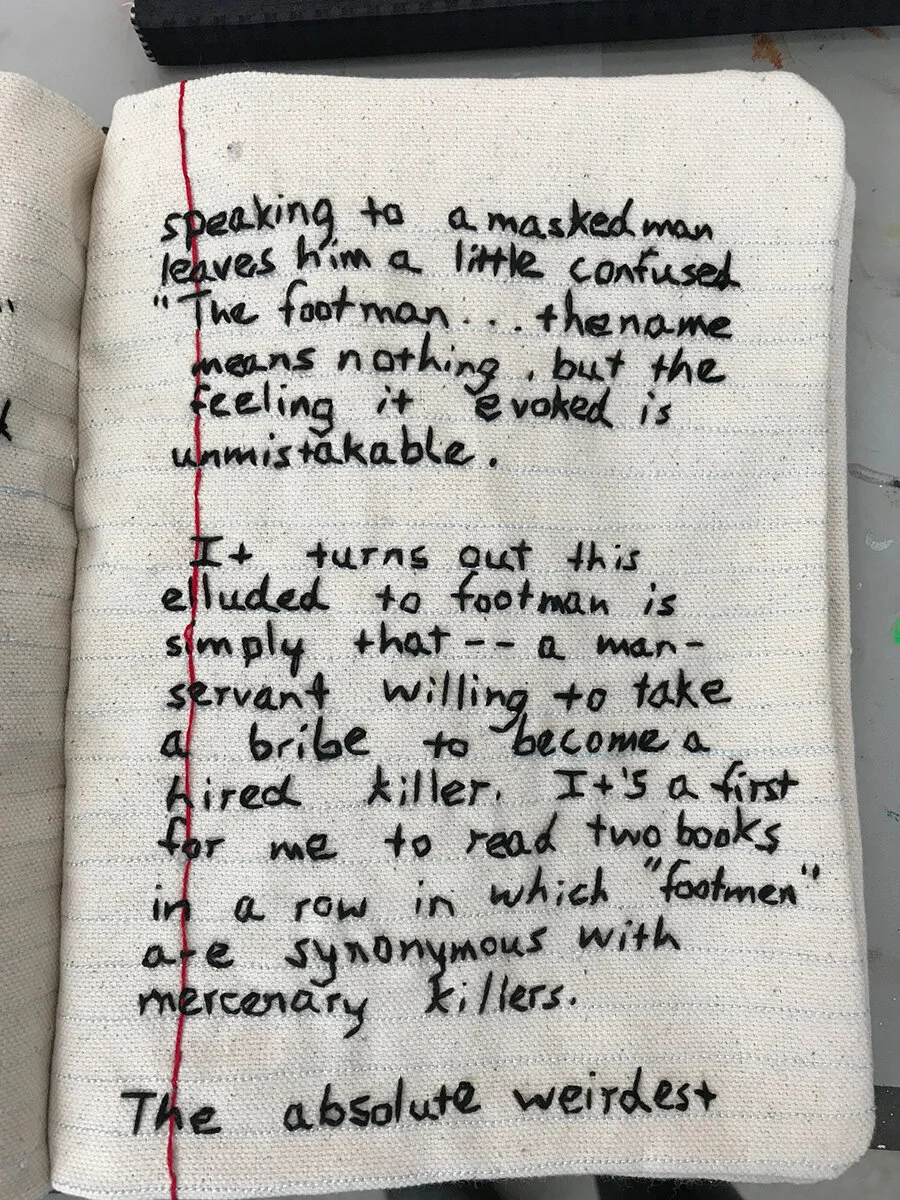 speaking to a masked man
leaves him a little confused
"The footman... the name
means nothing, but the
feeling it evoked is
unmistakable.
It turns out this
elluded to footman is
simply that -- a man-
servant willing to take
a bribe to become a
hired killer. It's a first
for me to read two books
in a row in which "footmen"
are synonymous with
mercenary killers.
The absolute weirdest